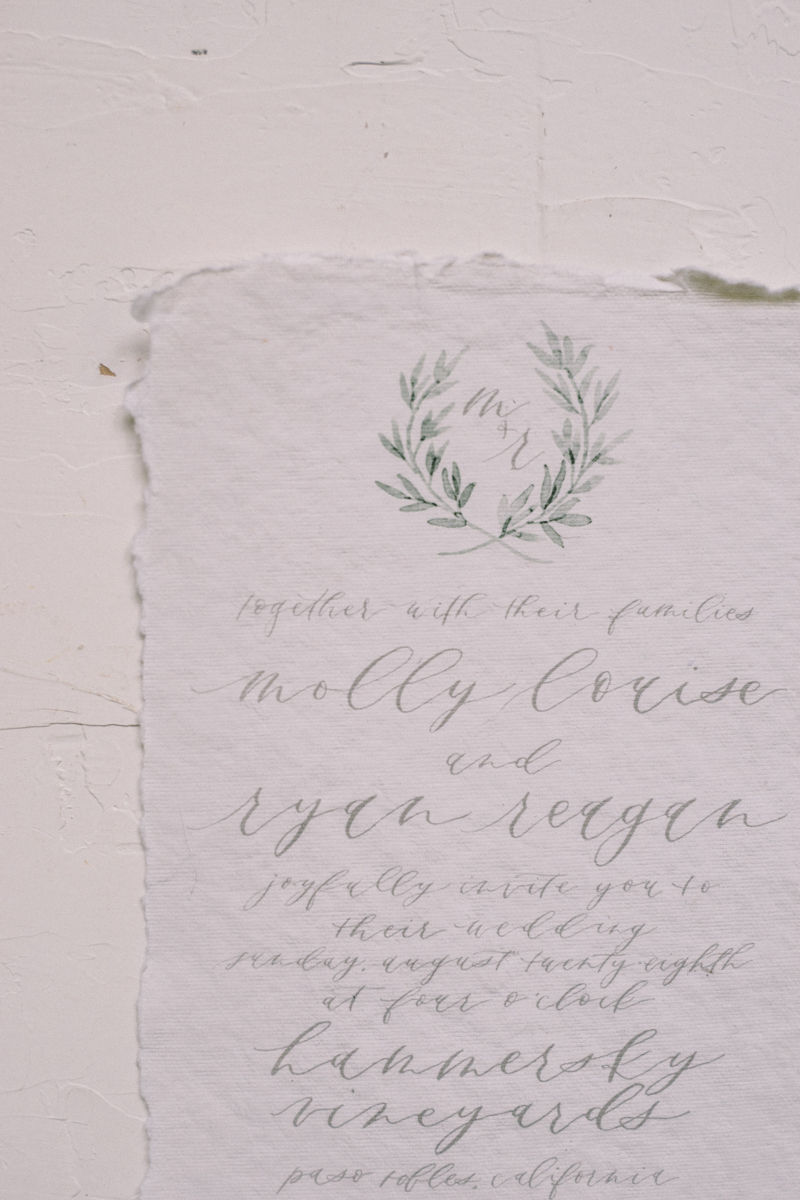 m
&
r
together with their families
molly louise
and
ryan reagan
joyfully invite you to
their wedding
sunday, august twenty-eighth
at four o'clock
hammersky
vineyards
paso robles, california